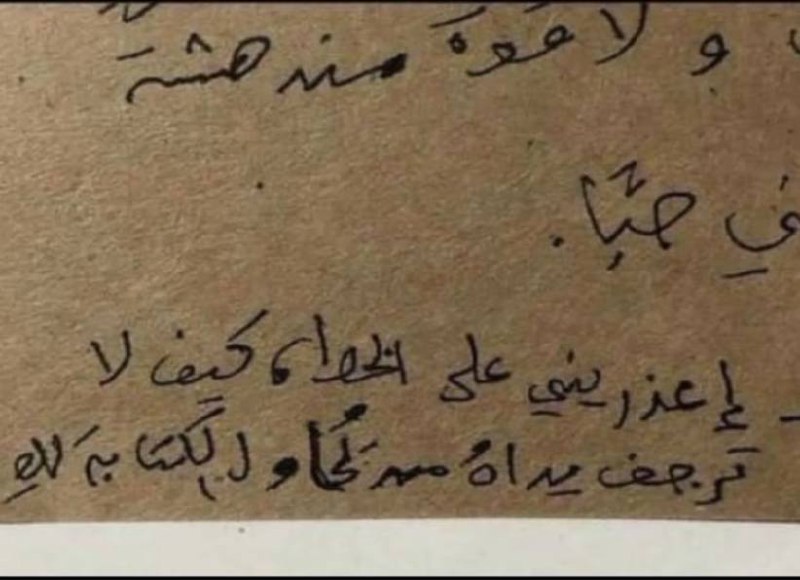 و لا قوة مندهشةَ
حبًّا .
- إعذريني على الخطا، كيف لا
تَرجف يداهُ من يُحاول الكتابةَ لكِ